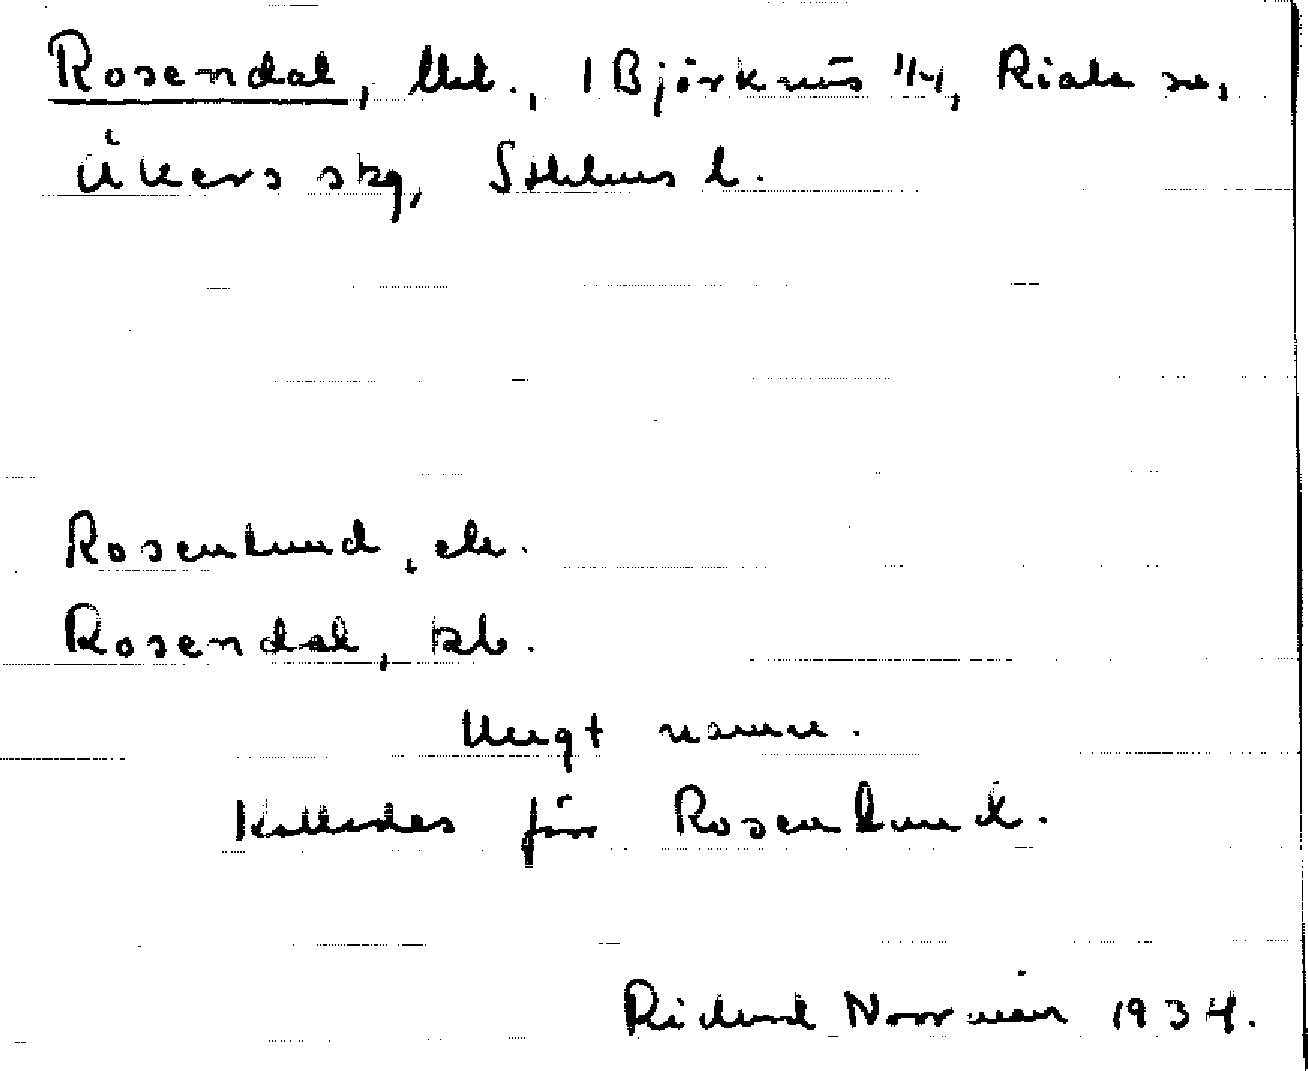 Rosendal, lht., 1 Björknäs 1/4, Riala sn,
Åkers skg, Sthlms l.
Rosenlund, ek.
Rosendal, kb.
Ungt namn.
Kallades förr Rosenlund.
Richard Norrman 1934.